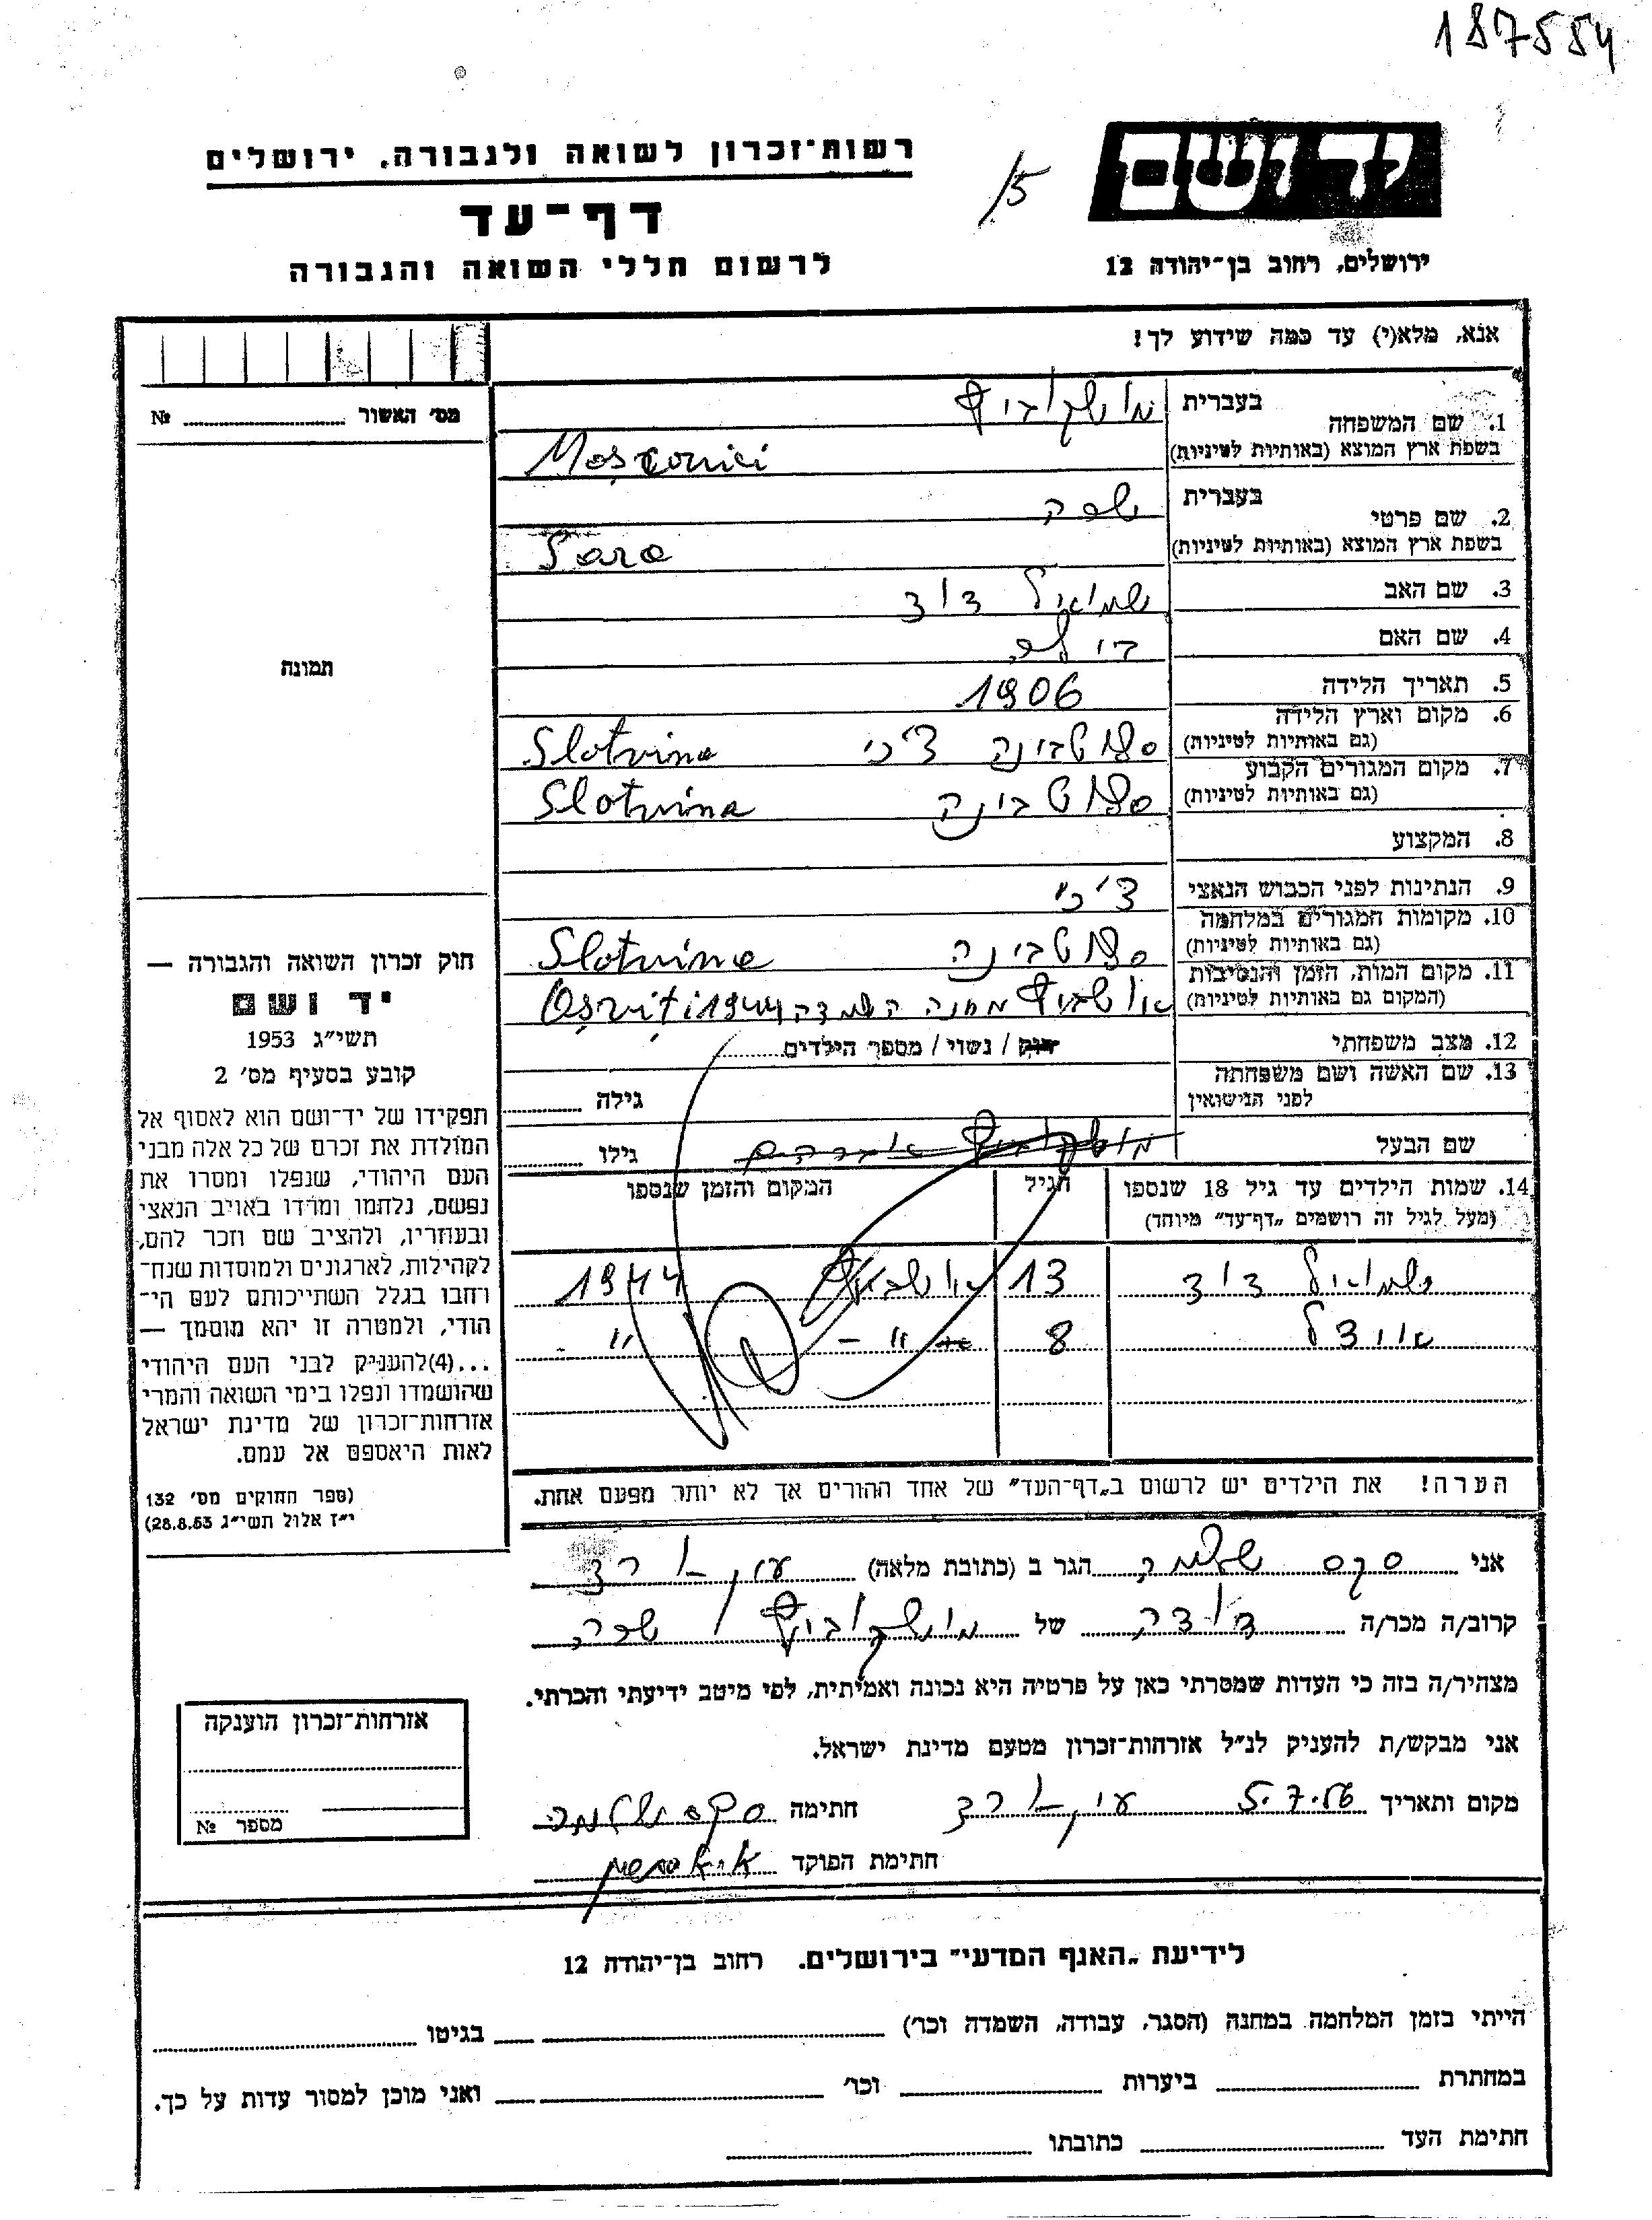 187554
יד ושם
15
רשות־זכרון לשואה ולגבורה, ירושלים
דף־עד
לרשום חללי השואה והגבורה
ירושלים, רחוב בן־יהודה 12
אנא, מלא(י) עד כמה שידוע לך!
מס׳ האשור № 
1. שם המשפחה בעברית מושקוביץ
בשפת ארץ המוצא (באותיות לטיניות) Moșcovici
2. שם פרטי בעברית שרה
בשפת ארץ המוצא (באותיות לטיניות) Sara
3. שם האב שמואל דוד
4. שם האם
5. תאריך הלידה 1906
6. מקום וארץ הלידה (גם באותיות לטיניות) סלוטבינה צ׳כי Slotvina
7. מקום המגורים הקבוע (גם באותיות לטיניות) סלוטבינה Slotvina
8. המקצוע
9. הנתינות לפני הכבוש הנאצי צ׳כי
10. מקומות המגורים במלחמה (גם באותיות לטיניות) סלוטבינה Slotvina
11. מקום המות, הזמן והנסיבות (המקום גם באותיות לטיניות) אושביץ מחנה השמדה 1944 Osviți
12. מצב משפחתי רוק / נשוי / מספר הילדים
13. שם האשה ושם משפחתה לפני הנישואין גילה
שם הבעל מושקוביץ אברהם גילו
14. שמות הילדים עד גיל 18 שנספו (מעל לגיל זה רושמים „דף־עד״ מיוחד) הגיל המקום והזמן שנספו
שמואל דוד 13 אושביץ 1944
אידל 8 – ״ – ״
הערה! את הילדים יש לרשום ב„דף־העד״ של אחד ההורים אך לא יותר מפעם אחת.
תמונה
חוק זכרון השואה והגבורה —
יד ושם
תשי״ג 1953
קובע בסעיף מס׳ 2
תפקידו של יד־ושם הוא לאסוף אל
המולדת את זכרם של כל אלה מבני
העם היהודי, שנפלו ומסרו את
נפשם, נלחמו ומרדו באויב הנאצי
ובעוזריו, ולהציב שם וזכר להם,
לקהילות, לארגונים ולמוסדות שנח־
רחבו בגלל השתייכותם לעם הי־
הודי, ולמטרה זו יהא מוסמך —
...(4)להעניק לבני העם היהודי
שהושמדו ונפלו בימי השואה והמרי
אזרחות־זכרון של מדינת ישראל
לאות היאספם אל עמם.
(ספר החוקים מס׳ 132
י״ז אלול תשי״ג 28.8.53)
אני סקס שלמה הגר ב (כתובת מלאה) עין־ורד
קרוב/ה מכר/ה דודה של מושקוביץ שרה
מצהיר/ה בזה כי העדות שמסרתי כאן על פרטיה היא נכונה ואמיתית, לפי מיטב ידיעתי והכרתי.
אני מבקש/ת להעניק לנ״ל אזרחות־זכרון מטעם מדינת ישראל.
מקום ותאריך 5.7.56 עין־ורד חתימה סקס שלמה
חתימת הפוקד
אזרחות־זכרון הוענקה
מספר №
לידיעת „האגף המדעי״ בירושלים. רחוב בן־יהודה 12
הייתי בזמן המלחמה במחנה (הסגר, עבודה, השמדה וכו׳) בגיטו
במחתרת ביערות וכו׳ ואני מוכן למסור עדות על כך.
חתימת העד כתובתו